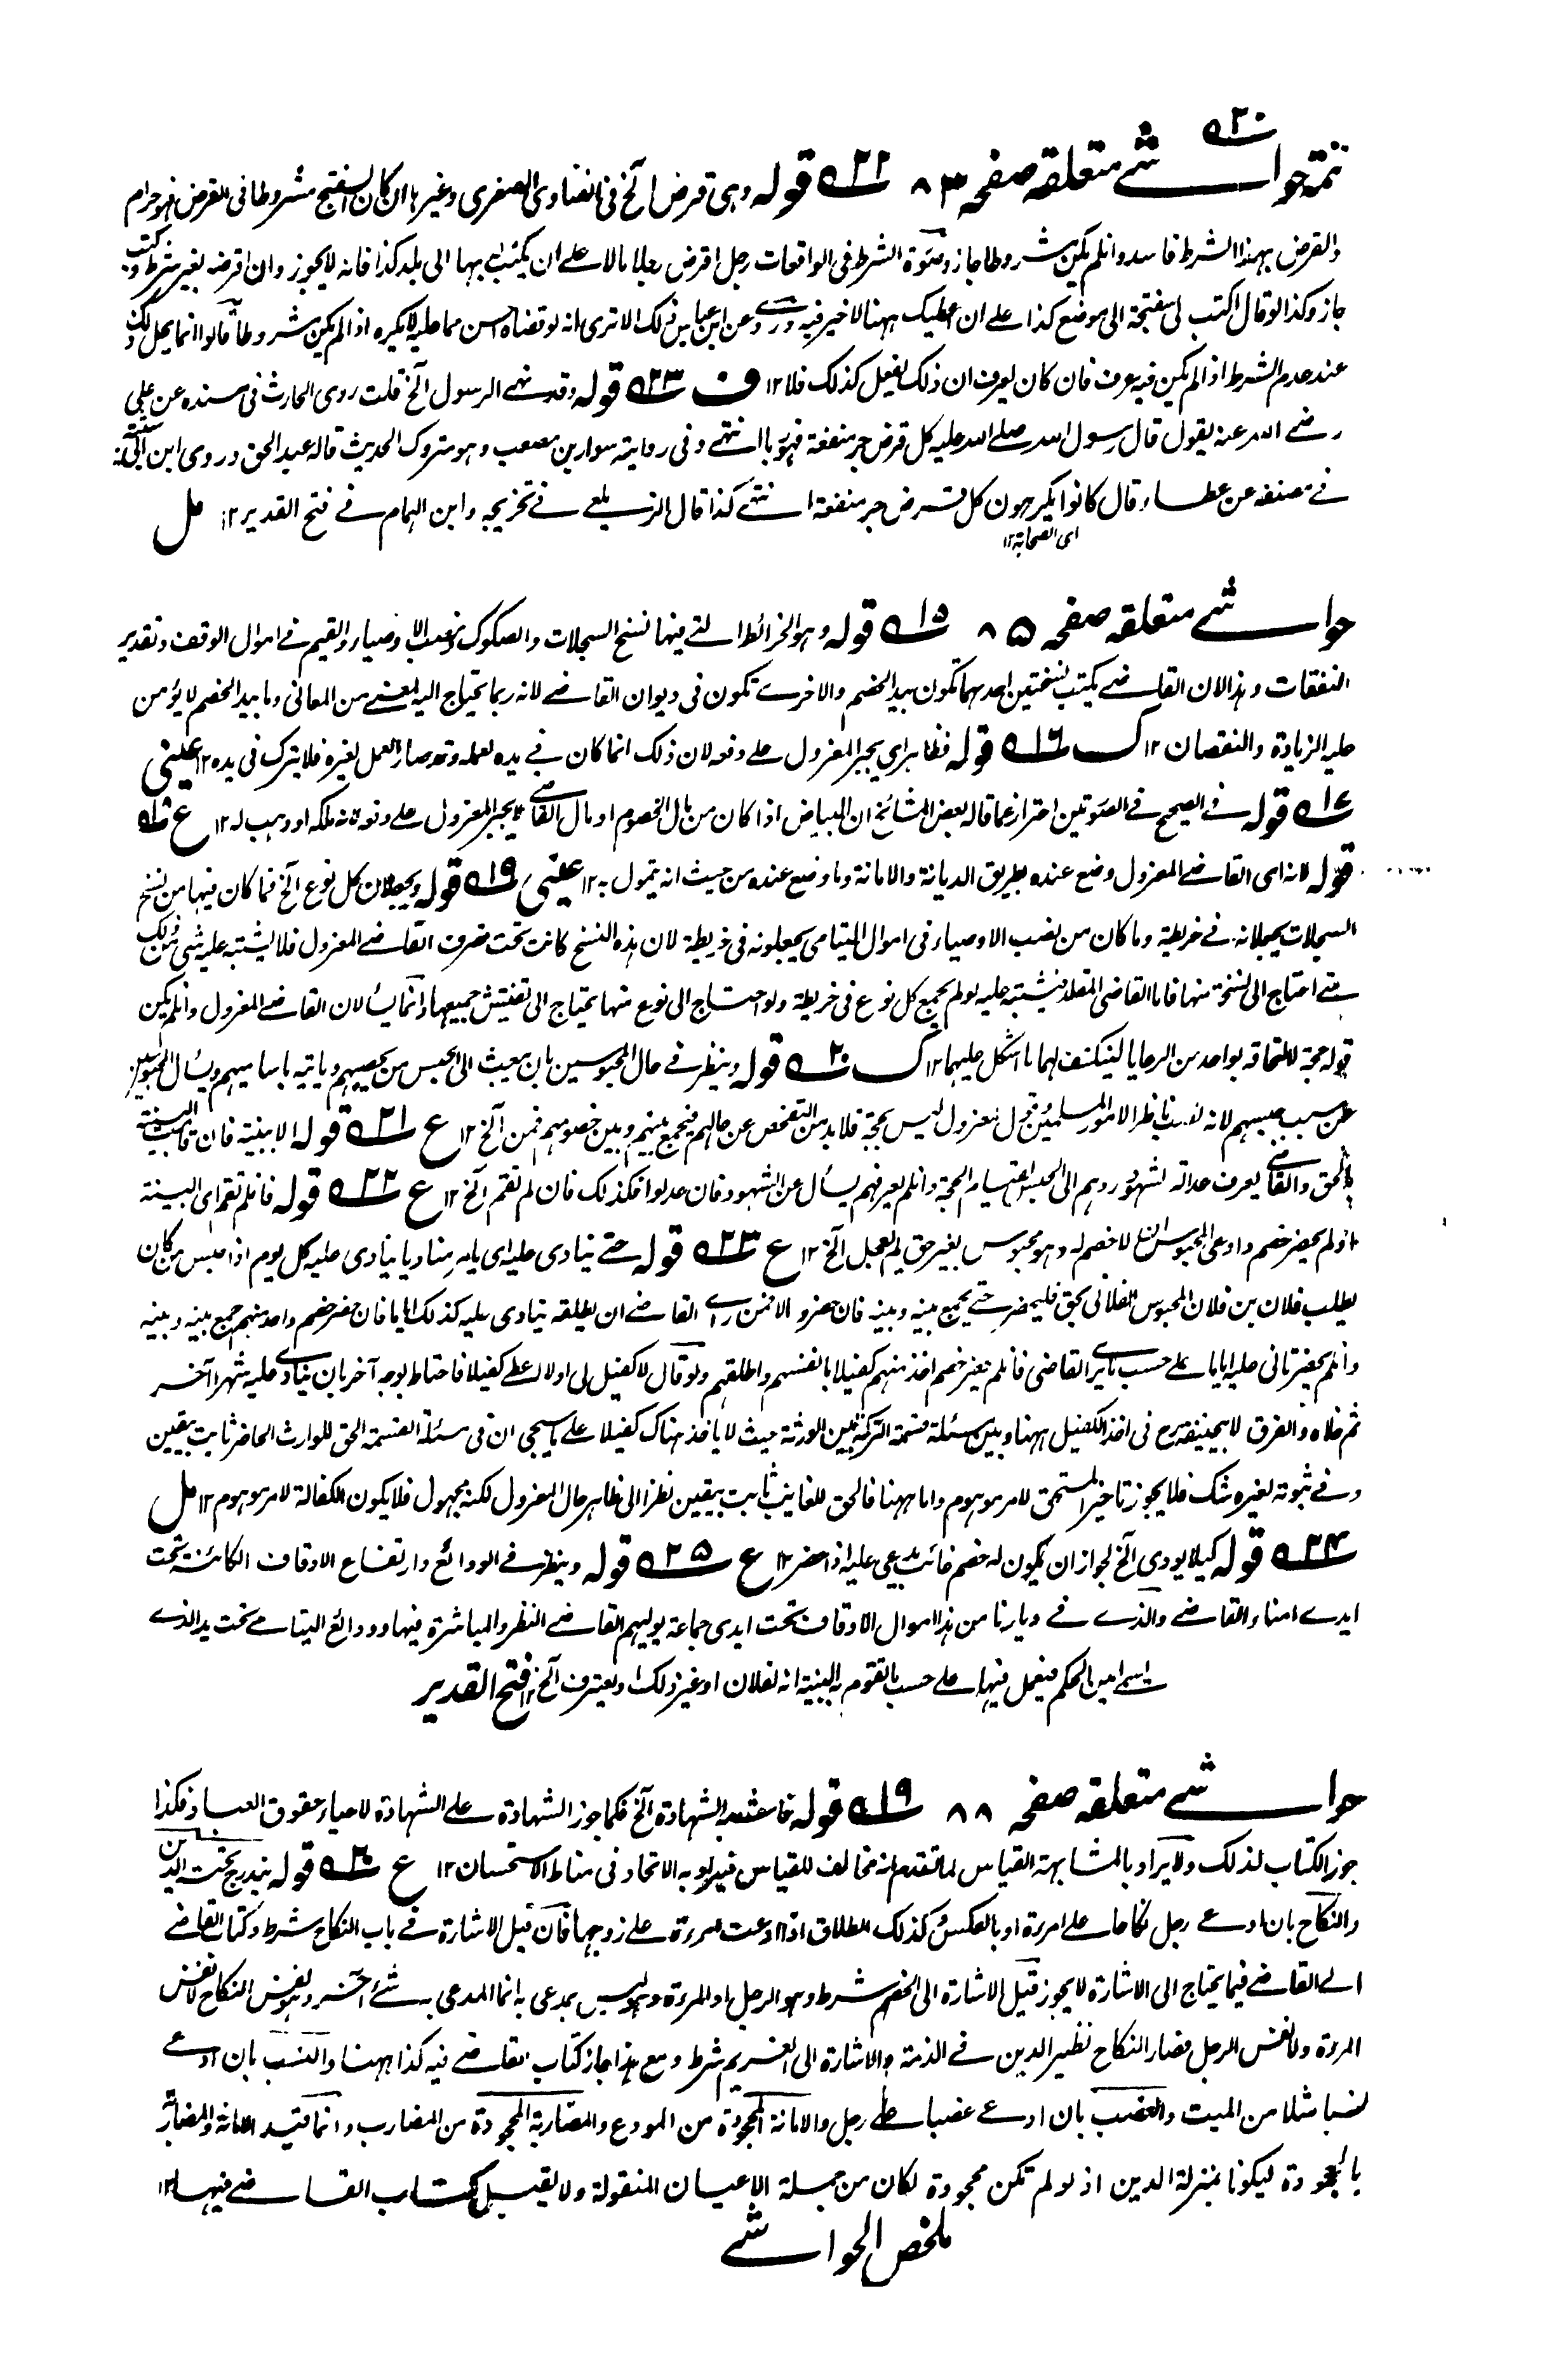 ۵۲۰
تتمہ حواشی متعلقہ صفحہ ۸۳ ۲۲ قولہ وہی قرض الخ فی الفتاوی الصغری وغیرہا ان کان السفتج مشروطا فی القرض فہو حرام
والقرض بہذا الشرط فاسد وانلم یکن مشروطا جاز وصورة الشرط فی الواقعات رجل اقرض رجلا مالا علے ان یکتب بہا الی بلد کذا فانہ لا یجوز وان اقرضہ بغیر شرط وکتب
جاز وکذا لو قال اکتب لی سفتجة الی موضع کذا علے ان اعطیک ہہنا لا خیر فیہ وروے عن ابن عباس ذلک الا تری انہ لو قضاہ احسن مما علیہ لا یکرہ اذا لم یکن مشروطا قالوا انما یحل ذلک
عند عدم الشرط اذا لم یکن فیہ عرف فان کان یعرف ان ذلک یفعل کذلک فلا ۱۲ ف ۲۳ قولہ وقد نہے الرسول الخ قلت روی الحارث فی مسندہ عن علی
رضے اللہ عنہ یقول قال رسول اللہ صلے اللہ علیہ کل قرض جر منفعة فہو ربا انتہے وفی روایتہ سوار بن مصعب وہو متروک الحدیث قالہ عبد الحق وروی ابن ابی شیبة
فے مصنفہ عن عطاء قال کانوا یکرہون کل قرض جر منفعة انتہے کذا قال الزیلعے فے تخریجہ وابن الہمام فے فتح القدیر ۱۲ مل
ای الصحابة ۱۲
حواشی متعلقہ صفحہ ۸۵ ۱۵ قولہ وہو الخرائط التے فیہا نسخ السجلات والصکوک ونصب الاوصیاء والقیم فے اموال الوقف وتقدیر
النفقات وہذا لان القاضے یکتب نسختین احدہما تکون بید الخصم والاخرے تکون فی دیوان القاضے لانہ ربما یحتاج الیہ لمعنے من المعانی وما بید الخصم لا یؤمن
علیہ الزیادة والنقصان ۱۲ ک ۱۶ قولہ فظاہر ای یجبر المعزول علے دفعہ لان ذلک انما کان فے یدہ لعملہ وقد صار العمل لغیرہ فلا یترک فی یدہ ۱۲ عینی
۱۷ قولہ فے الصحیح فے الصورتین احتراز عما قالہ بعض المشائخ ان البیاض اذا کان من مال الخصوم او مال القاضے لا یجبر المعزول علے دفعہ لانہ ملکہ او وہب لہ ۱۲ ع ۱۸
قولہ لانہ ای القاضے المعزول وضع عندہ بطریق الدیانة والامانة وما وضع عندہ من حیث انہ تمول بہ ۱۲ عینی ۱۹ قولہ ویجعلان کل نوع الخ فما کان فیہا من نسخ
السجلات یجعلانہ فے خریطة وما کان من نصب الاوصیاء فی اموال الیتامی یجعلونہ فی خریطة لان ہذہ النسخ کانت تحت تصرف القاضے المعزول فلا یشتبہ علیہ شئ من ذلک
متے احتاج الی نسخة منہا فاما القاضی المقلد فیشتبہ علیہ لو لم یجمع کل نوع فی خریطة ولو احتاج الی نوع منہا یحتاج الی تفتیش جمیعہا وانما یسألان القاضے المعزول وانلم یکن
قولہ حجة لالتحاقہ بواحد من الرعایا لینکشف لہما ما اشکل علیہما ۱۲ ک ۲۰ قولہ وینظر فے حال المحبوسین بان یبعث الی الحبس من یحصیہم ویاتیہ باسامیہم ویسأل المحبوسین
عن سبب حبسہم لانہ نصب ناظرا لامور المسلمین وقول المعزول لیس بحجة فلا بد من التفحص عن حالہم فیجمع بینہم وبین خصومہم فمن الخ ۱۲ ع ۲۱ قولہ الا ببینة فان قامت البینة
بالحق والقاضے یعرف عدالة الشہود ردہم الی الحبس لقیام الحجة وانلم یعرفہم یسأل عن الشہود فان عدلوا فکذلک فان لم تقم الخ ۱۲ ع ۲۲ قولہ فانلم تقم ای البینة
او لم یحضر خصم وادعی المحبوس ان لا خصم لہ وہو محبوس بغیر حق لم یعجل الخ ۱۲ ع ۲۳ قولہ حتے ینادی علیہ ای یامر منادیا ینادی علیہ کل یوم اذا جلس من کان
یطلب فلان بن فلان المحبوس الفلانی بحق فلیحضر حتے یجمع بینہ وبینہ فان حضر والا فمن رأے القاضے ان یطلقہ ینادی علیہ کذلک ایاما فان حضر خصم واحد منہم جمع بینہ وبینہ
وانلم یحضر تانی علیہ ایاما علے حسب ما یرے القاضی فانلم یحضر خصم اخذ منہم کفیلا بانفسہم واطلقہم ولو قال لا کفیل لی او لا اعطے کفیلا فاحتاط بوجہ آخر بان ینادے علیہ شہرا آخر
ثم خلاہ والفرق لابیحنیفة رح فی اخذ الکفیل ہہنا وبین مسئلة قسمة الترکة بین الورثة حیث لا یاخذ ہناک کفیلا علے ما سیجی ان فی مسئلة القسمة الحق للوارث الحاضر ثابت بیقین
وفے ثبوتہ لغیرہ شک فلا یجوز تاخیر المستحق لامر موہوم واما ہہنا فالحق للغائب ثابت بیقین نظرا الی ظاہر حال المعزول لکنہ مجہول فلا یکون الکفالة لامر موہوم ۱۲ مل
۲۴ قولہ کیلا یودی الخ لجواز ان یکون لہ خصم غائب یدعی علیہ اذا حضر ۱۲ ع ۲۵ قولہ وینظر فے الودائع وارتفاع الاوقاف الکائنة تحت
ایدے امناء القاضے والذے فے دیارنا من ہذا اموال الاوقاف تحت ایدی جماعة یولیہم القاضے النظر والمباشرة فیہا وودائع الیتامے تحت ید الذے
یسمے امین الحکم فیعمل فیہا علے حسب ما تقوم بہ البینة انہ لفلان او غیر ذلک او یعترف الخ ۱۲ فتح القدیر
حواشی متعلقہ صفحہ ۸۸ ۱۹ قولہ الشہادة الخ فکما جوز الشہادة علے الشہادة لاحیاء حقوق العباد فکذا
جوز الکتاب لذلک ولا یراد بالمشابہة القیاس لما تقدم انہ مخالف للقیاس فیراد بہ الاتحاد فی مناط الاستحسان ۱۲ ع ۲۰ قولہ یندرج تحت الدین
والنکاح بان ادعے رجل نکاحا علے امرءة او بالعکس وکذلک الطلاق اذا ادعت امرءة علے زوجہا فان قیل الاشارة فے باب النکاح شرط وکتاب القاضے
الے القاضے فیما یحتاج الی الاشارة لا یجوز قیل الاشارة الی الخصم شرط وہو الرجل او المرءة وہو لیس بمدعی بہ انما المدعی بہ شئ آخر وہو نفس النکاح لا نفس
المرءة ولا نفس الرجل فصار النکاح نظیر الدین فے الذمة والاشارة الی الغریم شرط ومع ہذا جاز کتاب القاضے فیہ کذا ہہنا والنسب بان ادعے
نسبا مثلا من المیت والغصب بان ادعے غصبا علے رجل والامانة المجحودة من المودع والمضاربة المجحودة من المضارب وانما قید الامانة والمضاربة
بالمجحودة لیکونا بمنزلة الدین اذ لو لم تکن مجحودة لکان من جملة الاعیان المنقولة ولا یقبل کتاب القاضے فیہا ۱۲
ملخص الحواشی